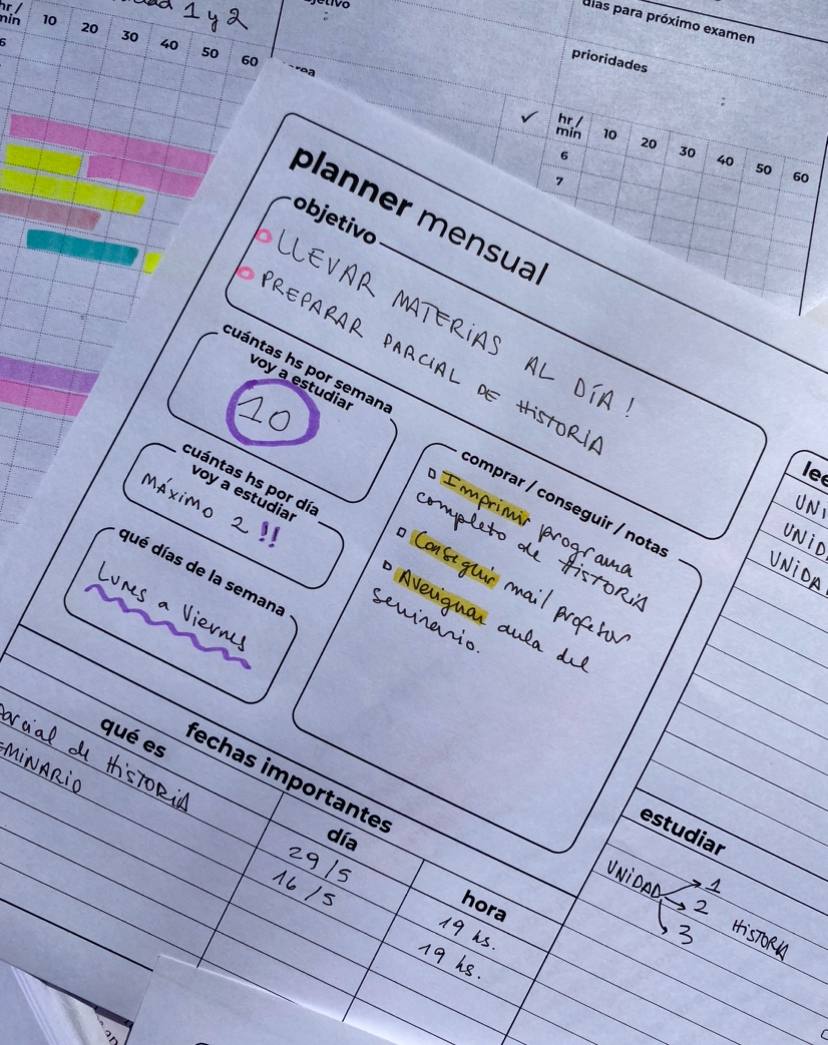 1 y 2
hr /
min
10 20 30 40 50 60
6
días para próximo examen
prioridades
:
:
✓ hr /
min
10 20 30 40 50 60
6
7
planner mensual
objetivo
LLEVAR MATERIAS AL DÍA!
PREPARAR PARCIAL DE HISTORIA
cuántas hs por semana
voy a estudiar
10
cuántas hs por día
voy a estudiar
MÁXIMO 2 !!
qué días de la semana
Lunes a Viernes
comprar / conseguir / notas
Imprimir programa
completo de HISTORIA
Conseguir mail profesor
Averiguar aula del
seminario.
fechas importantes
qué es día hora
Parcial de HISTORIA 29/5 19 hs.
SEMINARIO 16/5 19 hs.
estudiar
UNIDAD 1
2 HISTORIA
3